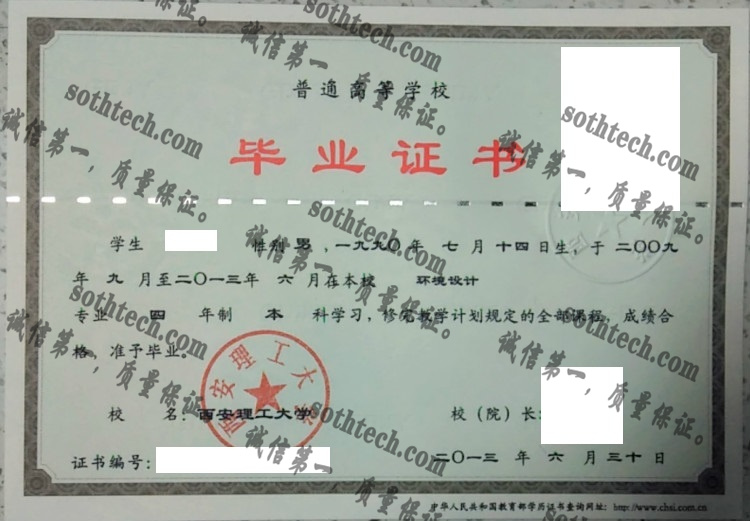 普通高等学校
毕业证书
学生 性别 男,一九九〇年 七 月 十四 日生,于 二〇〇九
年 九 月至二〇一三年 六 月在本校 环境设计
专业 四 年制 本 科学习,修完教学计划规定的全部课程,成绩合
格,准予毕业。
西安理工大学
校 名:西安理工大学 校(院)长:
证书编号: 二〇一三 年 六 月 三十 日
中华人民共和国教育部学历证书查询网址:http://www.chsi.com.cn
sothtech.com
诚信第一,质量保证。
sothtech.com
诚信第一,质量保证。
sothtech.com
诚信第一,质量保证。
sothtech.com
诚信第一,质量保证。
sothtech.com
诚信第一,质量保证。
sothtech.com
诚信第一,质量保证。
sothtech.com
诚信第一,质量保证。
sothtech.com
诚信第一,质量保证。